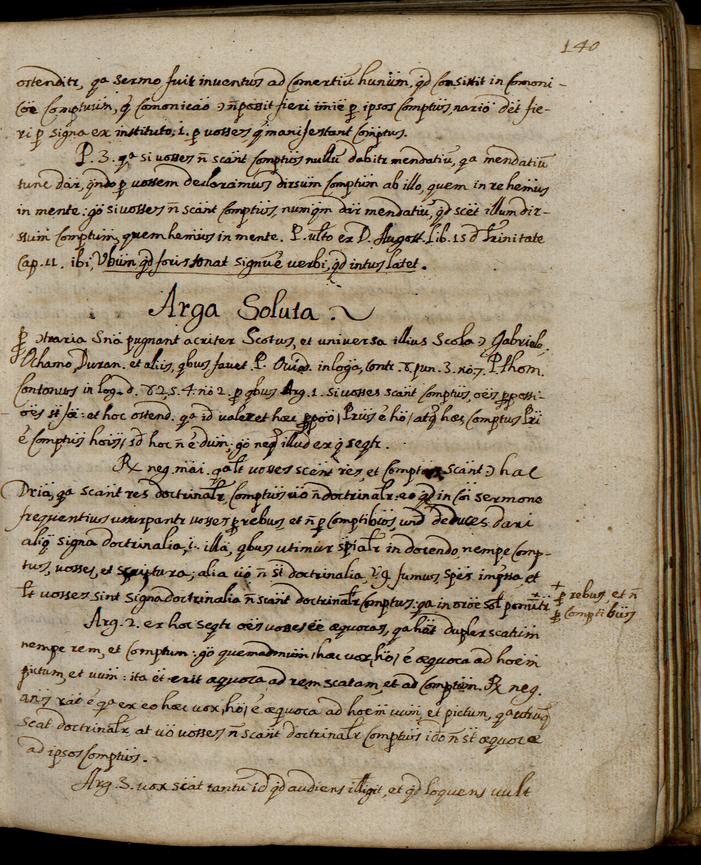 140
ostenditr, qa sermo fuit inventus ad comertiũ hunũm, qd consistit in comoni-
coẽ comptuum, q̃ comonicão ɔ̃ ñ possit fieri im̃ie p̱ ipsos comptus, nario det fie-
ri p̱ signa ex instituto, i. p̱ vosses q̃ manifestant comptus.
P. 3. qa si vosses ñ scant comptus nullũ dabitr mendatiũ, qa mendatiũ
tunc dar, qndo p̱ vossem declaramus dirsum comptum ab illo, quem in re hemus
in mente: go si vosses ñ scant comptus, numqm dar mendatiũ, qd scet illum dir-
ssum comptum, quem hemus in mente. P. ulto ex D. Augost. Lib. 15 d Trinitate
Cap. 11. ibi, Vbum qd foris sonat signũ ẽ verbi, qd intus latet.
Arga Soluta.
P̱ ɔtraria Snã pugnant acriter Scotus, et universa illius Scola ɔ̃ Gabriele,
Ochamo, Duran. et aliis, qbus favet P. Ouied. in loga, contr. 8. pun. 3. no 7. P. thom.
Comptonus in log. d. 42, S. 4. no 2. p̱ qbus Arg. 1. si vosses scant comptus, oẽs p̱possi-
oẽs st fã: et hoc ostend. qa id valeret haec p̱põo, Pr̃us ẽ ho, atq̃ haes comptus Pr̃i
ẽ comptus hois, sd hoc ñ ẽ dum: go neq̃ illud ex q̃ seqtr.
Rx neg. mai. qa lt vosses scent res, et comptus scant ɔ̃ hac
Dria, qa scant res doctrinalr, comptus uõ ñ doctrinalr: eo qd in coi sermone
frequentius usurpantr vosses p̱ rebus et ñ p̱ comptibus, und deduces dari
aliq̃ signa doctrinalia, i. illa, qbus utimur sp̃ialr in docendo, nempe comp-
tus, vosses, et scriptura; alia uõ ñ st doctrinalia, v. g. fumus, spẽs impssa et
lt vosses sint signa doctrinalia ñ scant doctrinalr comptus: qa in oroẽ sol ponuntr
+ p̱ rebus, et ñ
p̱ comptibus
Arg. 2. ex hoc seqtr oẽs vosses ẽẽ aequocas, qa hãt duplex scatum
nempe rem, et comptum: go quemadmum haec vox, ho, ẽ aequoca ad hoem
pictum, et vuum: ita et erit aequoca ad rem scatam, et ad comptum. Rx neg.
ans rao ẽ qa ex eo haec vox, ho, ẽ aequoca ad hoem vuum, et pictum, qa utrũq̃
scat doctrinalr at uõ vosses ñ scant doctrinalr comptus ido ñ st aequocae
ad ipsos comptus.
Arg. 3. vox scat tantũ id qd audiens illigit, et qd loquens vult